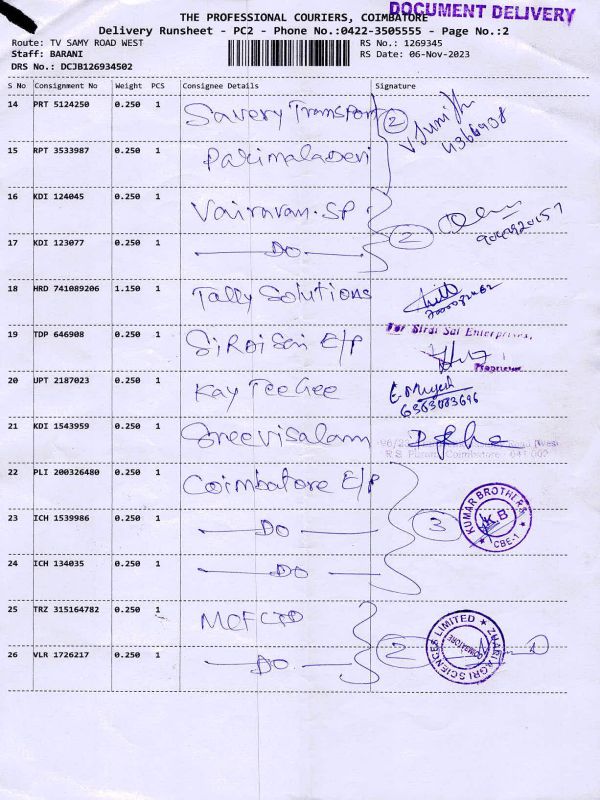 DOCUMENT DELIVERY
THE PROFESSIONAL COURIERS, COIMBATORE
Delivery Runsheet - PC2 - Phone No.:0422-3505555 - Page No.:2
Route: TV SAMY ROAD WEST RS No.: 1269345
Staff: BARANI RS Date: 06-Nov-2023
DRS No.: DCJB126934502
S No Consignment No Weight PCS Consignee Details Signature
14 PRT 5124250 0.250 1 Savery Transport 2
15 RPT 3533987 0.250 1 Parimaladevi
16 KDI 124045 0.250 1 Vairavan.SP
17 KDI 123077 0.250 1 DO 2
18 HRD 741089206 1.150 1 Tally Solutions
19 TDP 646908 0.250 1 SiRDi Sai E/P For Sirdi Sai Enterprises,
Proprietor
20 UPT 2187023 0.250 1 Kay Tee Gee
6363083696
21 KDI 1543959 0.250 1 Sreevisalam
R.S. Puram, Coimbatore - 641 002
22 PLI 200326480 0.250 1 Coimbatore E/P
23 ICH 1539986 0.250 1 DO 3 KUMAR BROTHERS K.B CBE-1
24 ICH 134035 0.250 1 DO
25 TRZ 315164782 0.250 1
26 VLR 1726217 0.250 1 DO 2 ZUARI AGRI SCIENCES LIMITED COIMBATORE